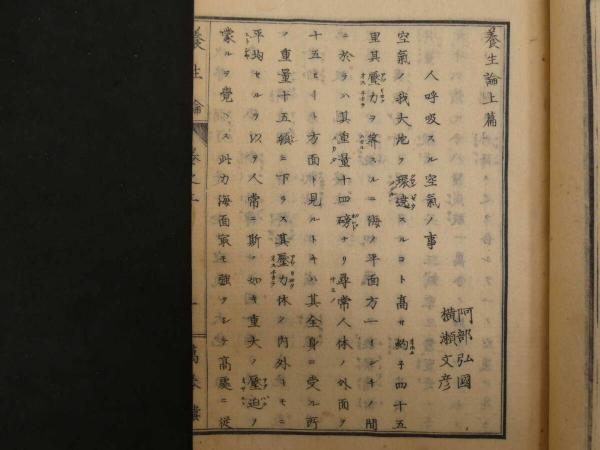 養生論上篇
阿部弘國
横瀬文彦
人呼吸スル空氣ノ事
空氣ノ我大地ヲ環遶スルコト高サ約ソ四十五
里其壓力ヲ算スルニ海ノ平面方一インチノ間
ニ於テハ其重量十四磅ナリ尋常人体ノ外面ヲ
十五セーキ方面ト見ルトキハ其全身ニ受ル所
ノ重量十五頓ニ下ラス其壓力体ノ内外トモニ
平均セルヲ以テ人常ニ斯ノ如キ重大ノ壓迫ヲ
蒙ルヲ覺ヘス此力海面最モ強クシテ高處ニ從
養生論
卷之上
一
萬
樓